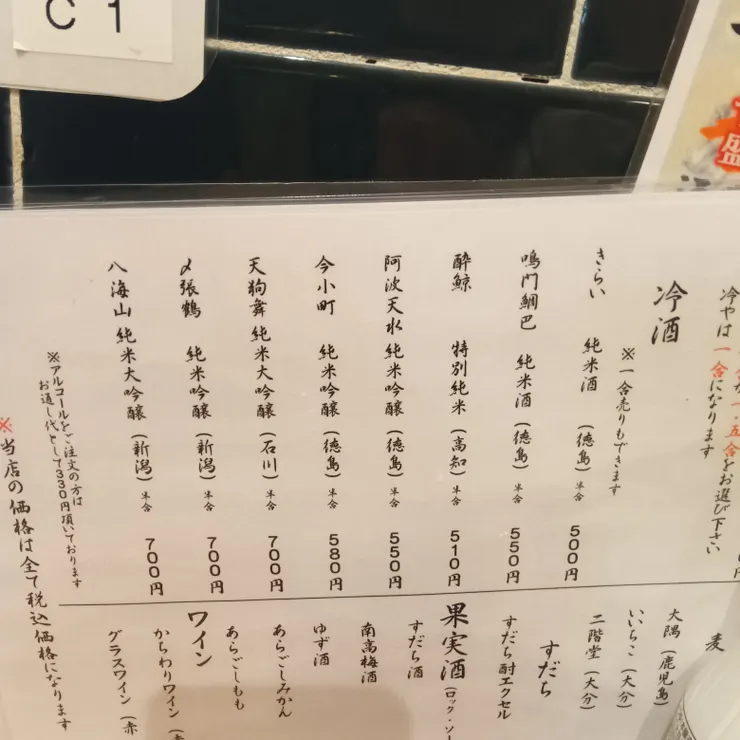 C 1
盛
冷やは一合になります
一・五合をお選び下さい
冷酒
※一合売りもできます
きらい 純米酒 (徳島) 半合 500円
鳴門鯛巴 純米酒 (徳島) 半合 550円
酔鯨 特別純米 (高知) 半合 510円
阿波天水 純米吟醸 (徳島) 半合 550円
今小町 純米吟醸 (徳島) 半合 580円
天狗舞 純米大吟醸 (石川) 半合 700円
〆張鶴 純米吟醸 (新潟) 半合 700円
八海山 純米大吟醸 (新潟) 半合 700円
※アルコールをご注文の方は
お通し代として330円頂いております
※当店の価格は全て税込価格になります
麦
大隅 (鹿児島)
いいちこ (大分)
二階堂 (大分)
すだち
すだち酎エクセル
果実酒 (ロック・ソー
すだち酒
南高梅酒
ゆず酒
あらごしみかん
あらごしもも
ワイン
かちわりワイン (赤
グラスワイン (赤